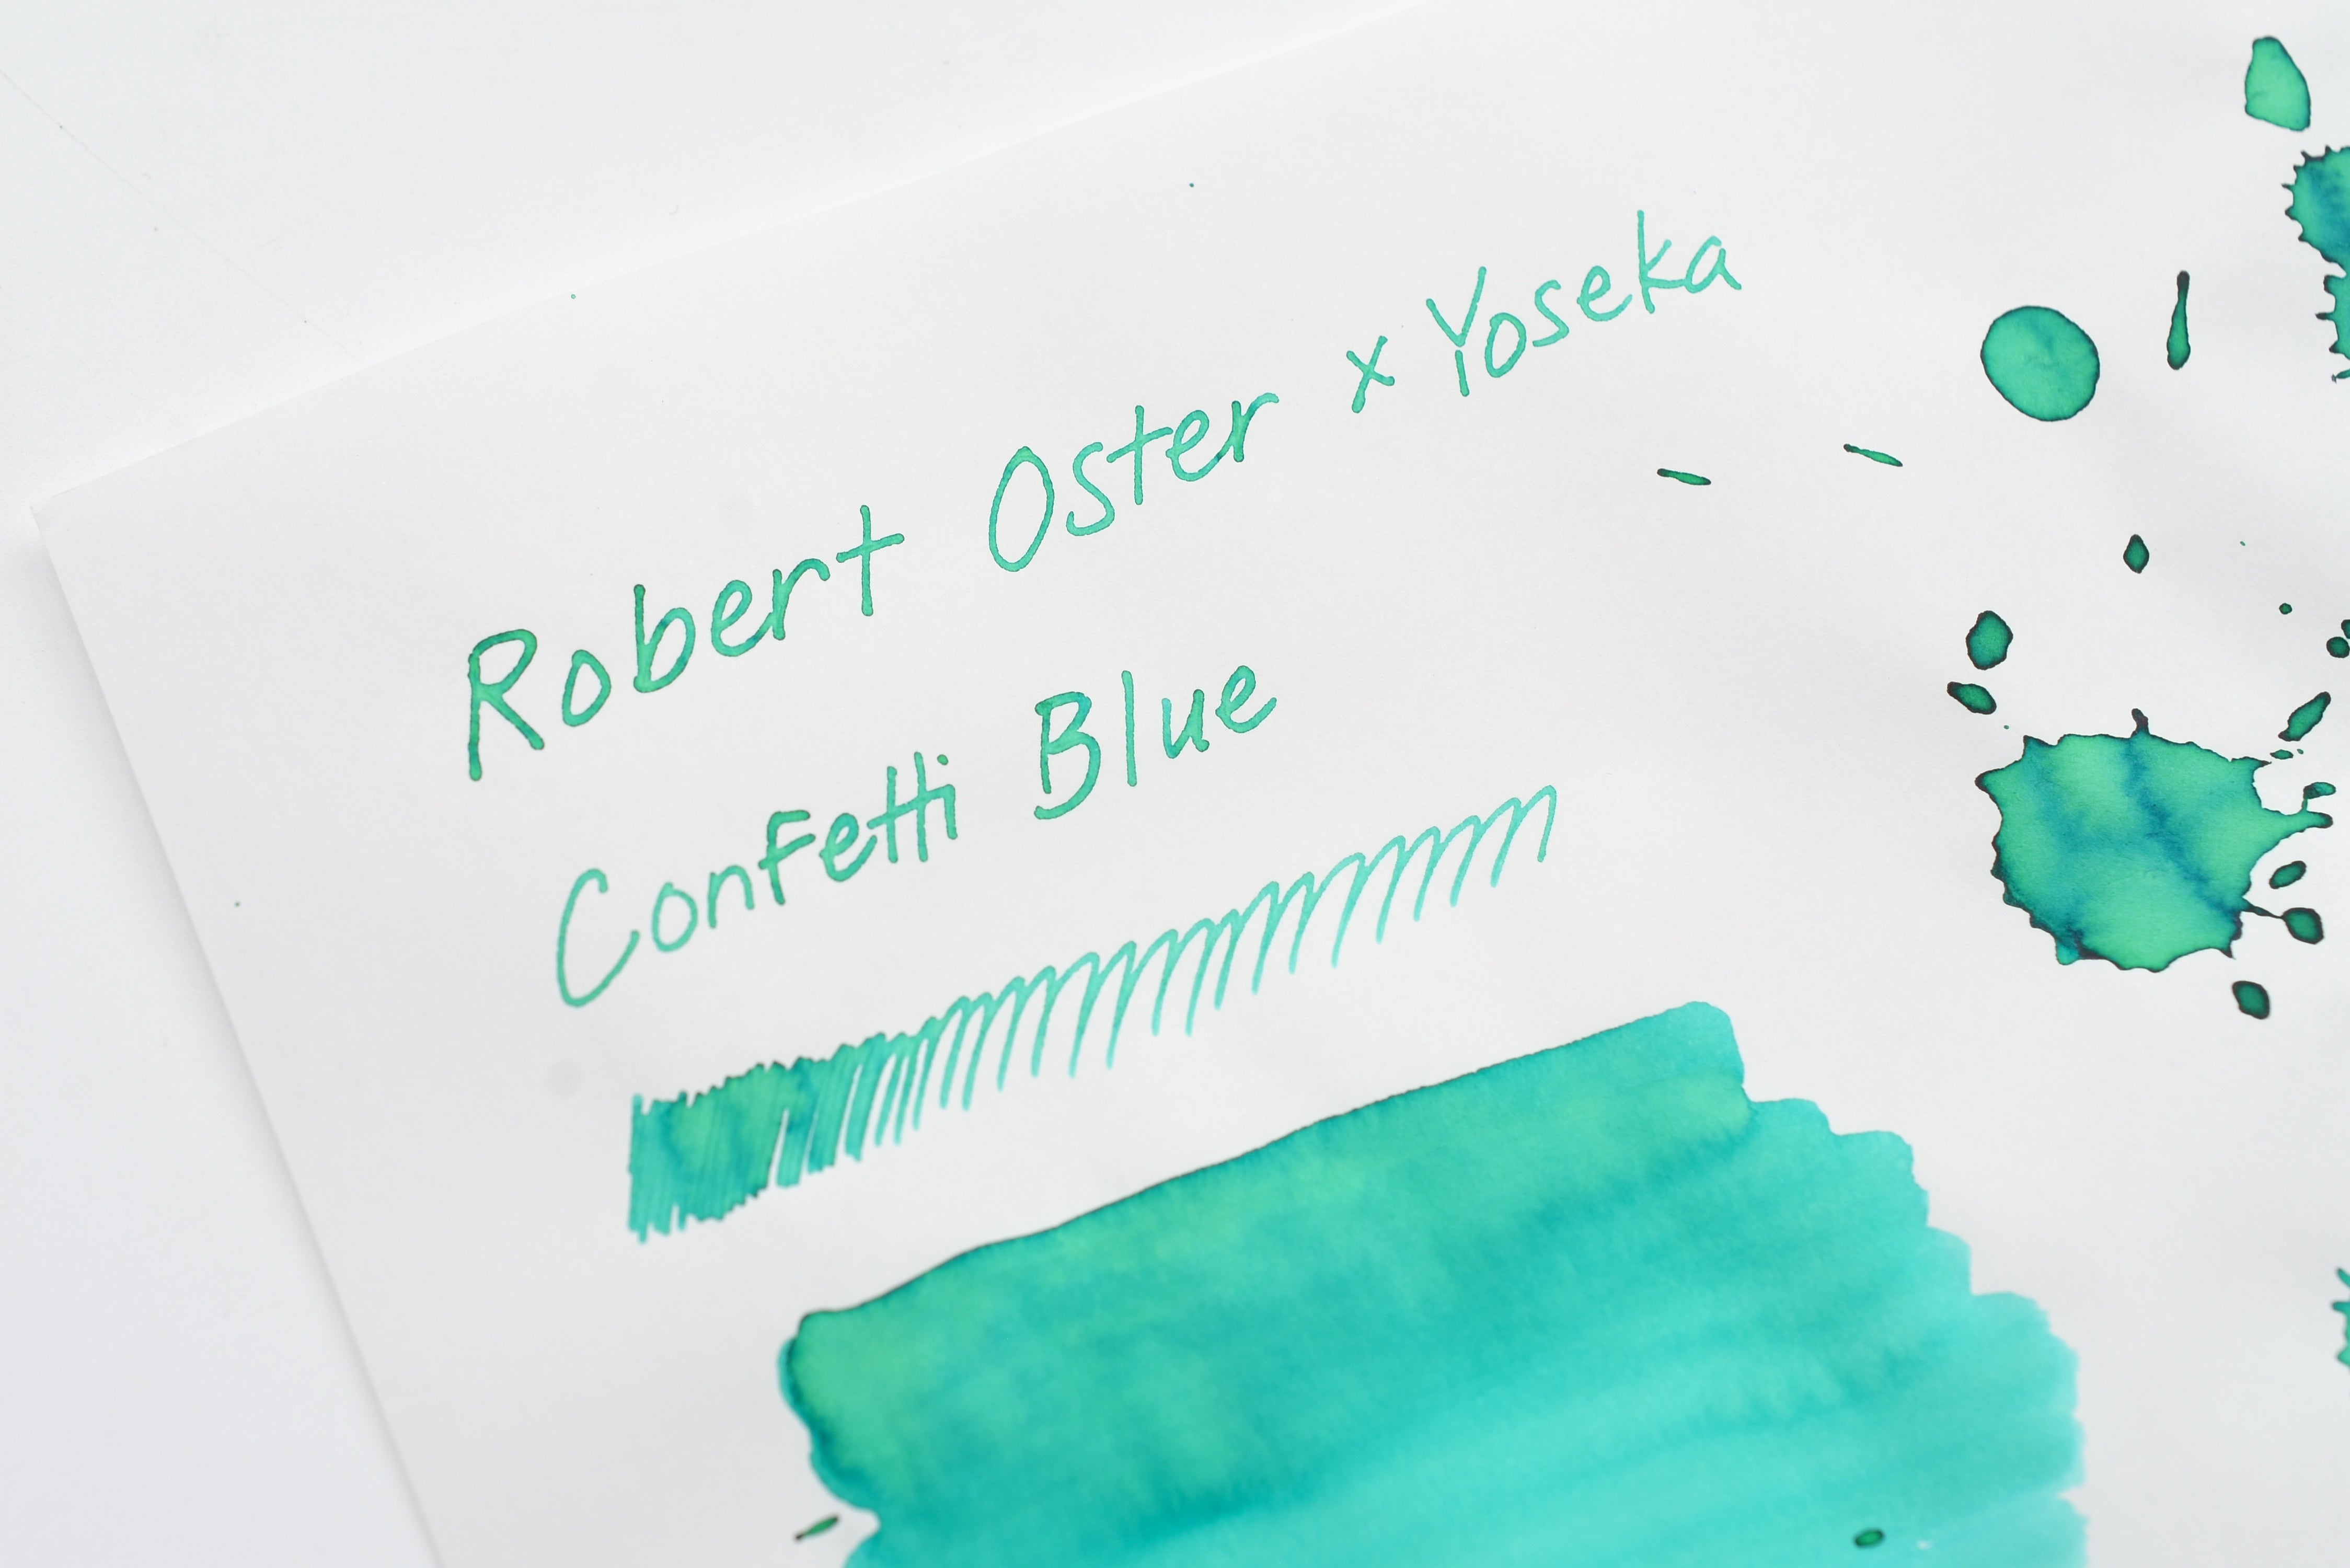 Robert Oster x Yoseka
Confetti Blue